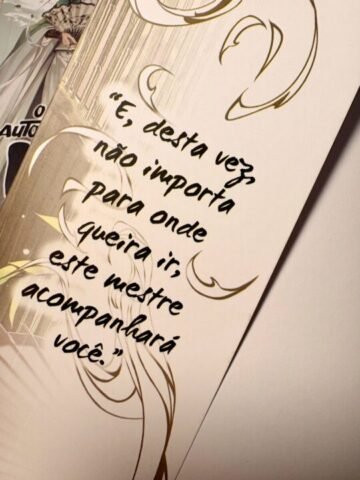 "E, desta vez,
não importa
para onde
queira ir,
este mestre
acompanhará
você."
O
AUTO